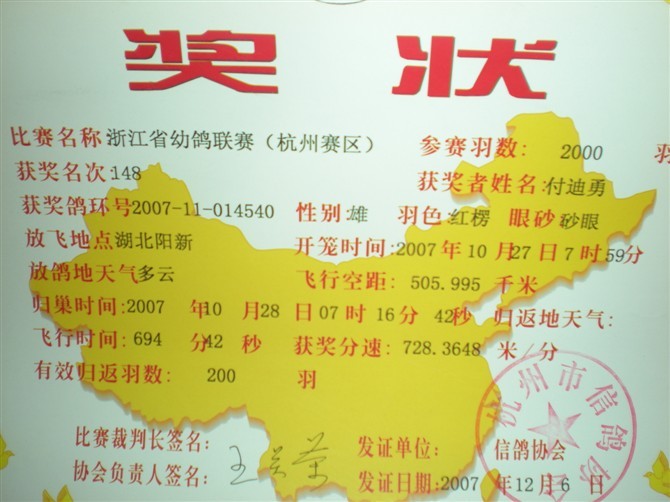 奖 状
比赛名称:浙江省幼鸽联赛（杭州赛区） 参赛羽数: 2000 羽
获奖名次:148 获奖者姓名:付迪勇
获奖鸽环号2007-11-014540 性别:雄 羽色:红楞 眼砂:砂眼
放飞地点湖北阳新 开笼时间:2007 年10 月27日7 时59分
放鸽地天气多云 飞行空距: 505.995 千米
归巢时间:2007 年10 月28 日07 时16分 42秒 归返地天气:
飞行时间: 694 分42 秒 获奖分速: 728.3648 米/分
有效归返羽数: 200 羽
比赛裁判长签名: 发证单位: 信鸽协会
协会负责人签名: 发证日期:2007 年12月6日
杭州市信鸽协